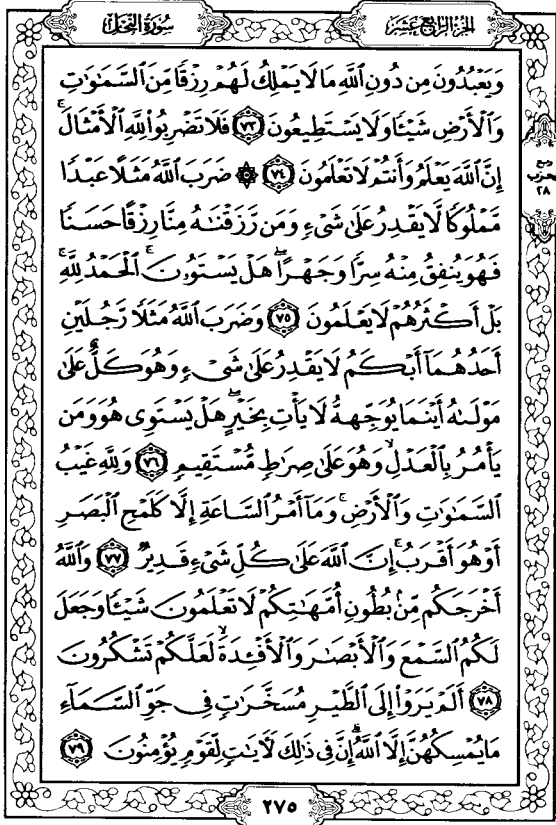 سُورَةُ النَّحۡلِ
الجُزءُ الرَّابِعَ عَشَرَ
وَيَعۡبُدُونَ مِن دُونِ ٱللَّهِ مَا لَا يَمۡلِكُ لَهُمۡ رِزۡقٗا مِّنَ ٱلسَّمَٰوَٰتِ
وَٱلۡأَرۡضِ شَيۡـٔٗا وَلَا يَسۡتَطِيعُونَ ٧٣ فَلَا تَضۡرِبُواْ لِلَّهِ ٱلۡأَمۡثَالَۚ
إِنَّ ٱللَّهَ يَعۡلَمُ وَأَنتُمۡ لَا تَعۡلَمُونَ ٧٤ ۞ ضَرَبَ ٱللَّهُ مَثَلًا عَبۡدٗا
مَّمۡلُوكٗا لَّا يَقۡدِرُ عَلَىٰ شَيۡءٖ وَمَن رَّزَقۡنَٰهُ مِنَّا رِزۡقًا حَسَنٗا
فَهُوَ يُنفِقُ مِنۡهُ سِرّٗا وَجَهۡرًاۖ هَلۡ يَسۡتَوُۥنَۚ ٱلۡحَمۡدُ لِلَّهِۚ
بَلۡ أَكۡثَرُهُمۡ لَا يَعۡلَمُونَ ٧٥ وَضَرَبَ ٱللَّهُ مَثَلٗا رَّجُلَيۡنِ
أَحَدُهُمَآ أَبۡكَمُ لَا يَقۡدِرُ عَلَىٰ شَيۡءٖ وَهُوَ كَلٌّ عَلَىٰ
مَوۡلَىٰهُ أَيۡنَمَا يُوَجِّههُّ لَا يَأۡتِ بِخَيۡرٍ هَلۡ يَسۡتَوِي هُوَ وَمَن
يَأۡمُرُ بِٱلۡعَدۡلِ وَهُوَ عَلَىٰ صِرَٰطٖ مُّسۡتَقِيمٖ ٧٦ وَلِلَّهِ غَيۡبُ
ٱلسَّمَٰوَٰتِ وَٱلۡأَرۡضِۚ وَمَآ أَمۡرُ ٱلسَّاعَةِ إِلَّا كَلَمۡحِ ٱلۡبَصَرِ
أَوۡ هُوَ أَقۡرَبُۚ إِنَّ ٱللَّهَ عَلَىٰ كُلِّ شَيۡءٖ قَدِيرٞ ٧٧ وَٱللَّهُ
أَخۡرَجَكُم مِّنۢ بُطُونِ أُمَّهَٰتِكُمۡ لَا تَعۡلَمُونَ شَيۡـٔٗا وَجَعَلَ
لَكُمُ ٱلسَّمۡعَ وَٱلۡأَبۡصَٰرَ وَٱلۡأَفۡـِٔدَةَ لَعَلَّكُمۡ تَشۡكُرُونَ
٧٨ أَلَمۡ يَرَوۡاْ إِلَى ٱلطَّيۡرِ مُسَخَّرَٰتٖ فِي جَوِّ ٱلسَّمَآءِ
مَا يُمۡسِكُهُنَّ إِلَّا ٱللَّهُۚ إِنَّ فِي ذَٰلِكَ لَأٓيَٰتٖ لِّقَوۡمٖ يُؤۡمِنُونَ ٧٩
ربع
الحزب
٢٨
٢٧٥